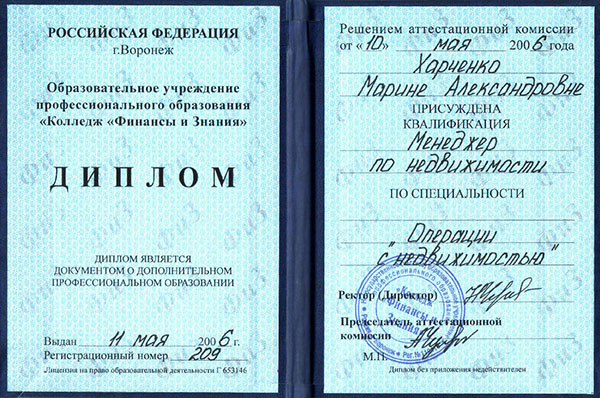 РОССИЙСКАЯ ФЕДЕРАЦИЯ
г.Воронеж
Образовательное учреждение
профессионального образования
«Колледж «Финансы и Знания»
ДИПЛОМ
ДИПЛОМ ЯВЛЯЕТСЯ
ДОКУМЕНТОМ О ДОПОЛНИТЕЛЬНОМ
ПРОФЕССИОНАЛЬНОМ ОБРАЗОВАНИИ
Выдан 11 мая 2006 г.
Регистрационный номер 209
Лицензия на право образовательной деятельности Г 653146
Решением аттестационной комиссии
от «10» мая 2006 года
Харченко
Марине Александровне
ПРИСУЖДЕНА
КВАЛИФИКАЦИЯ
Менеджер
по недвижимости
ПО СПЕЦИАЛЬНОСТИ
„Операции
с недвижимостью"
Ректор (Директор)
Председатель аттестационной
комиссии
М.П.
«Колледж
Финансы и
Знания»
Диплом без приложения недействителен